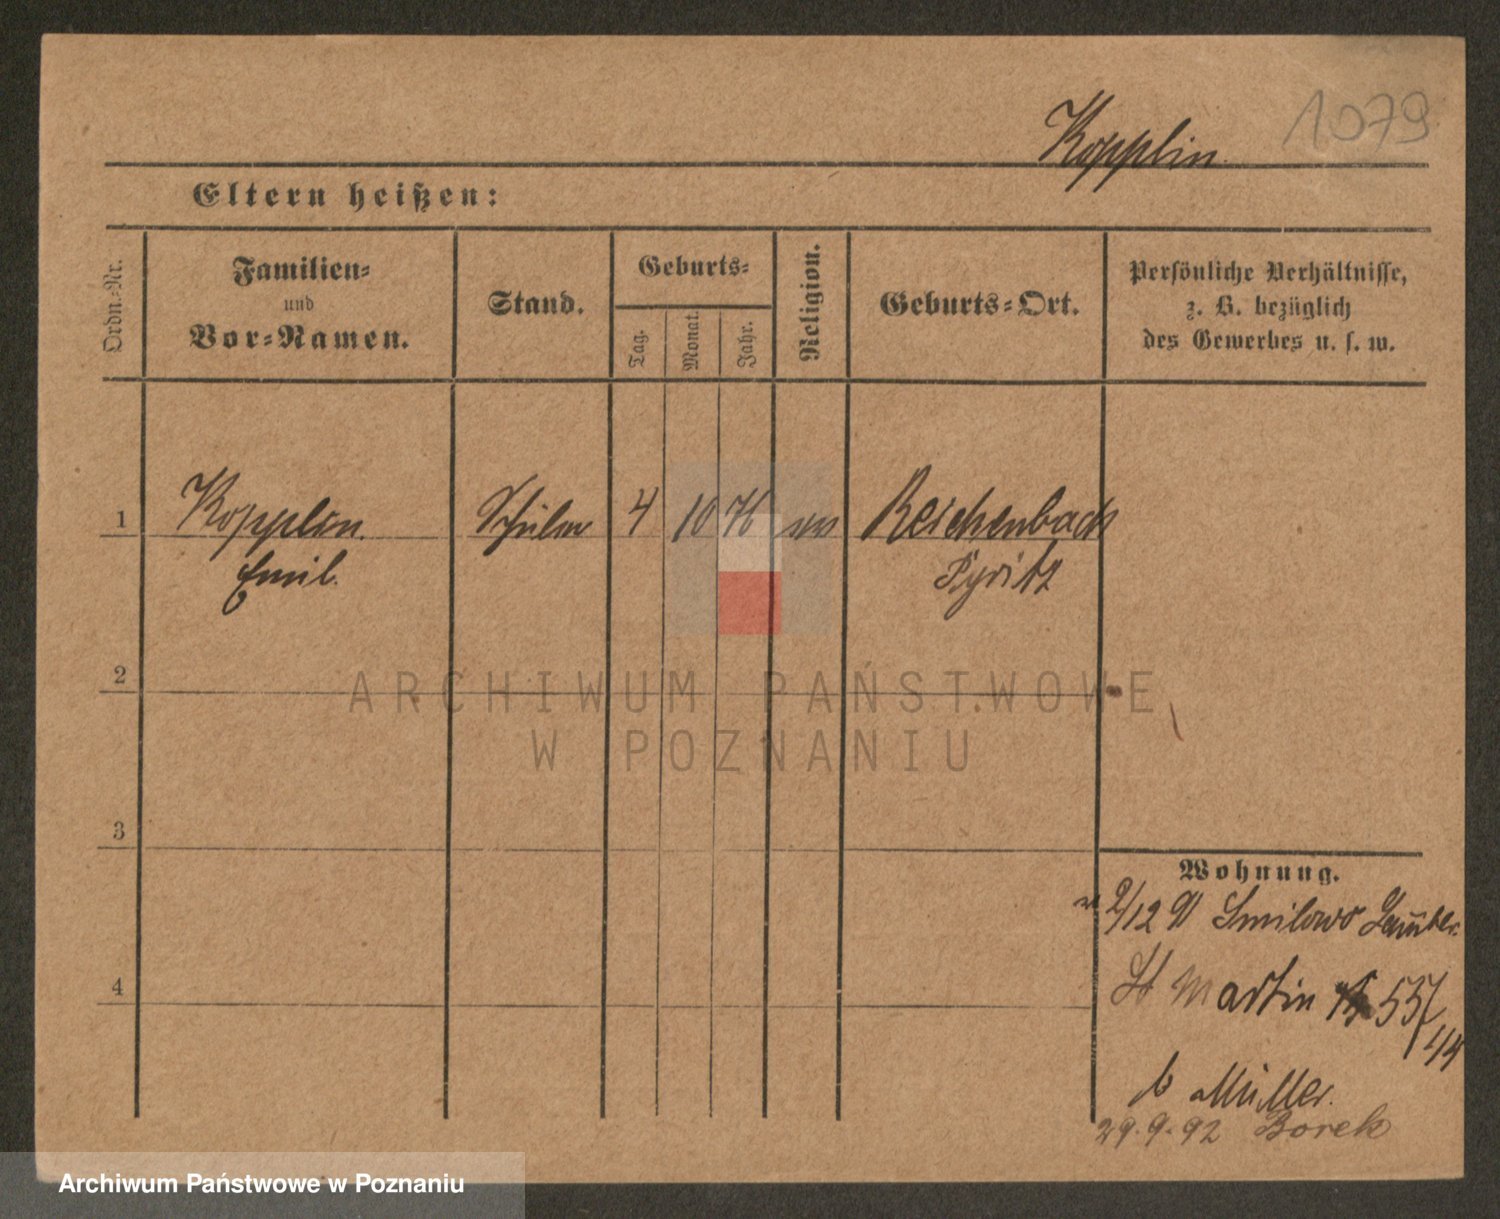 1079
Kopplin
Eltern heißen:
Ordn.-Nr.
Familien-
und
Vor-Namen.
Stand.
Geburts-
Tag.
Monat.
Jahr.
Religion.
Geburts-Ort.
Persönliche Verhältnisse,
z. B. bezüglich
des Gewerbes u. s. w.
1
Kopplin
Emil.
Schüler
4
10
76
ev
Reichenbach
Pyritz
2
ARCHIWUM PAŃSTWOWE
W POZNANIU
3
Wohnung.
2/12 91 Smilowo
4
St Martin 55
b Müller.
29.9.92 Borek
Archiwum Państwowe w Poznaniu